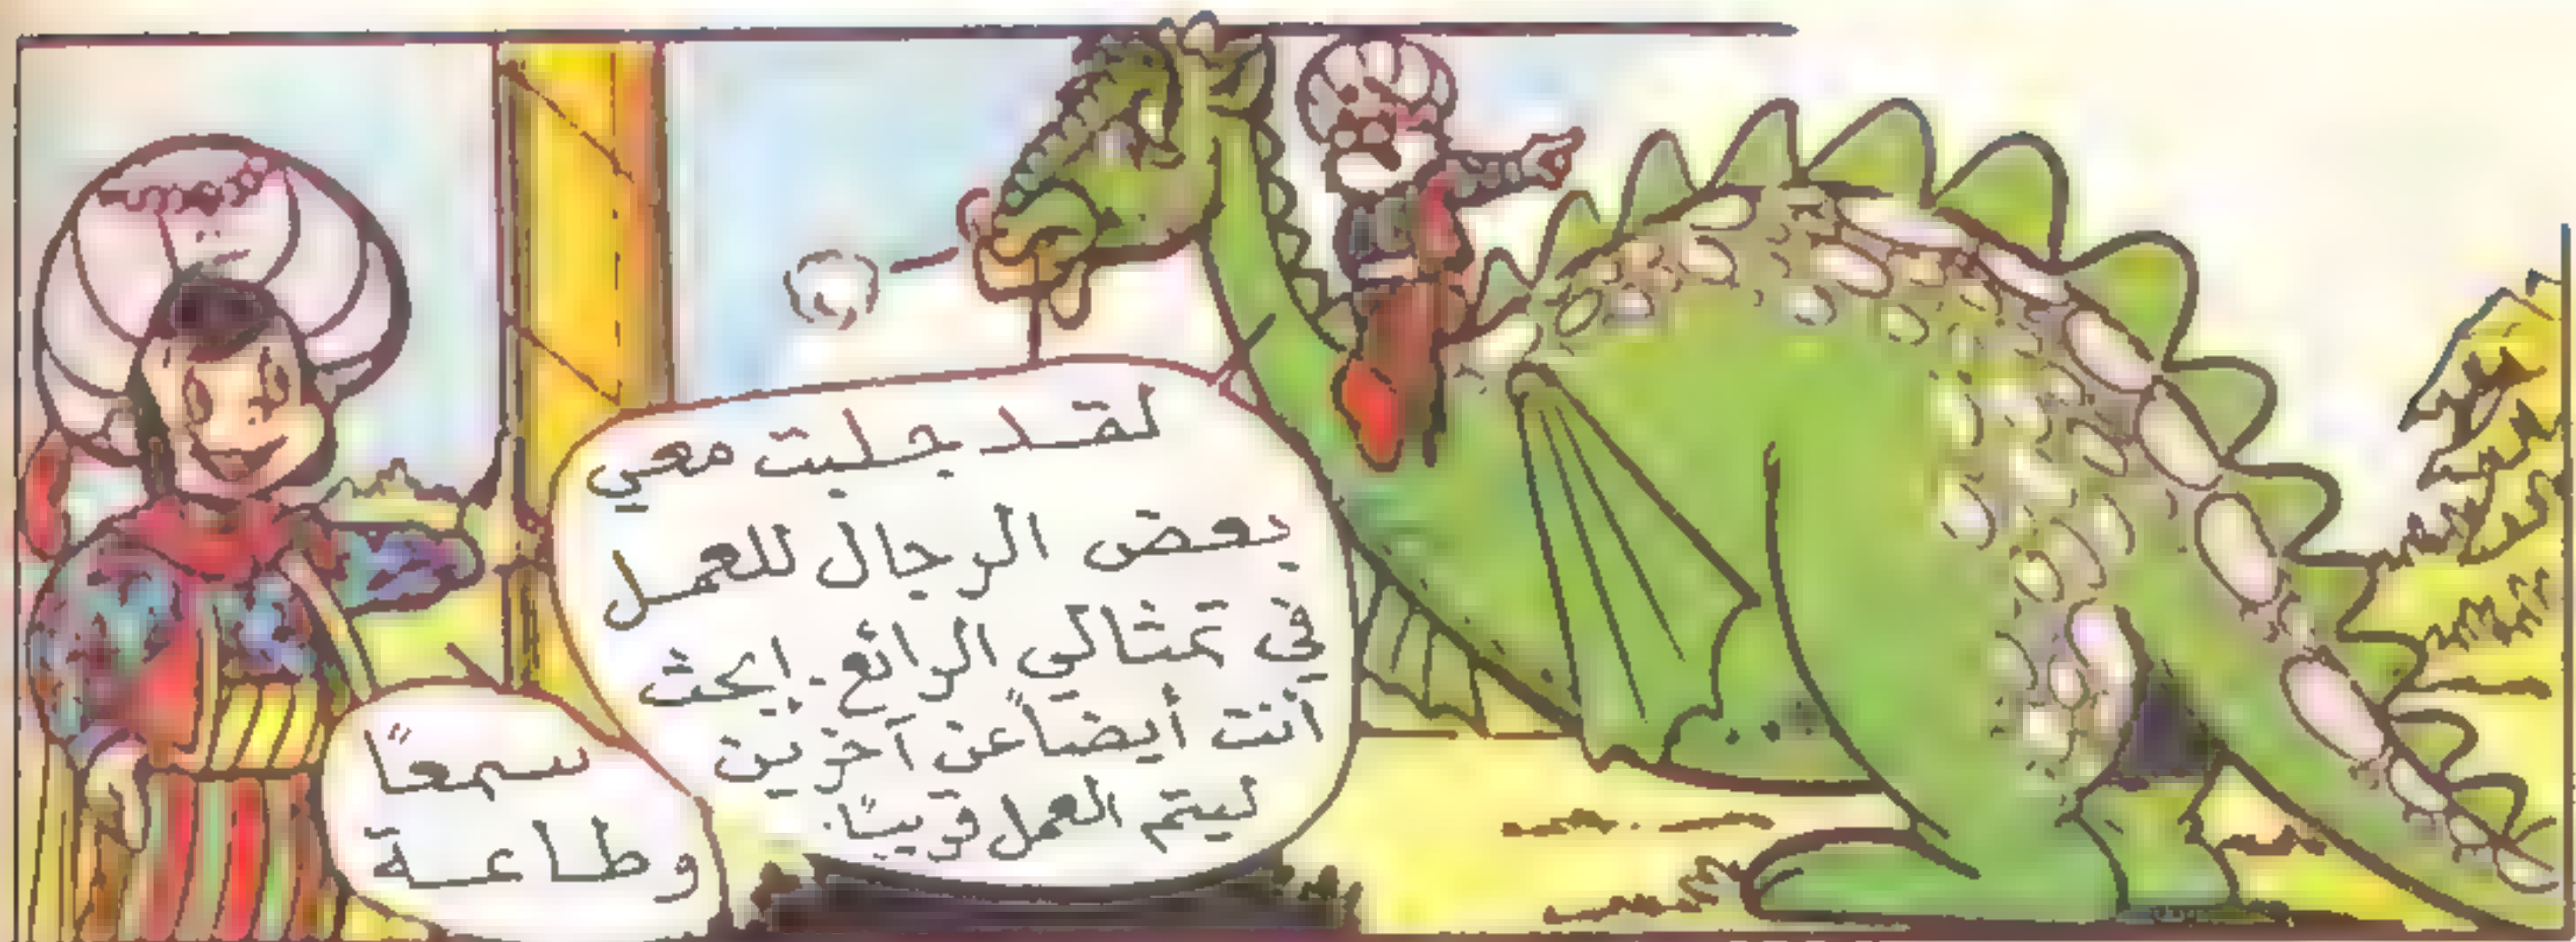 لقد جلبت معي
بعض الرجال للعمل
في تمثالي الرائع. إبحث
أنت أيضاً عن آخرين
ليتم العمل قريباً.
سمعاً
وطاعة